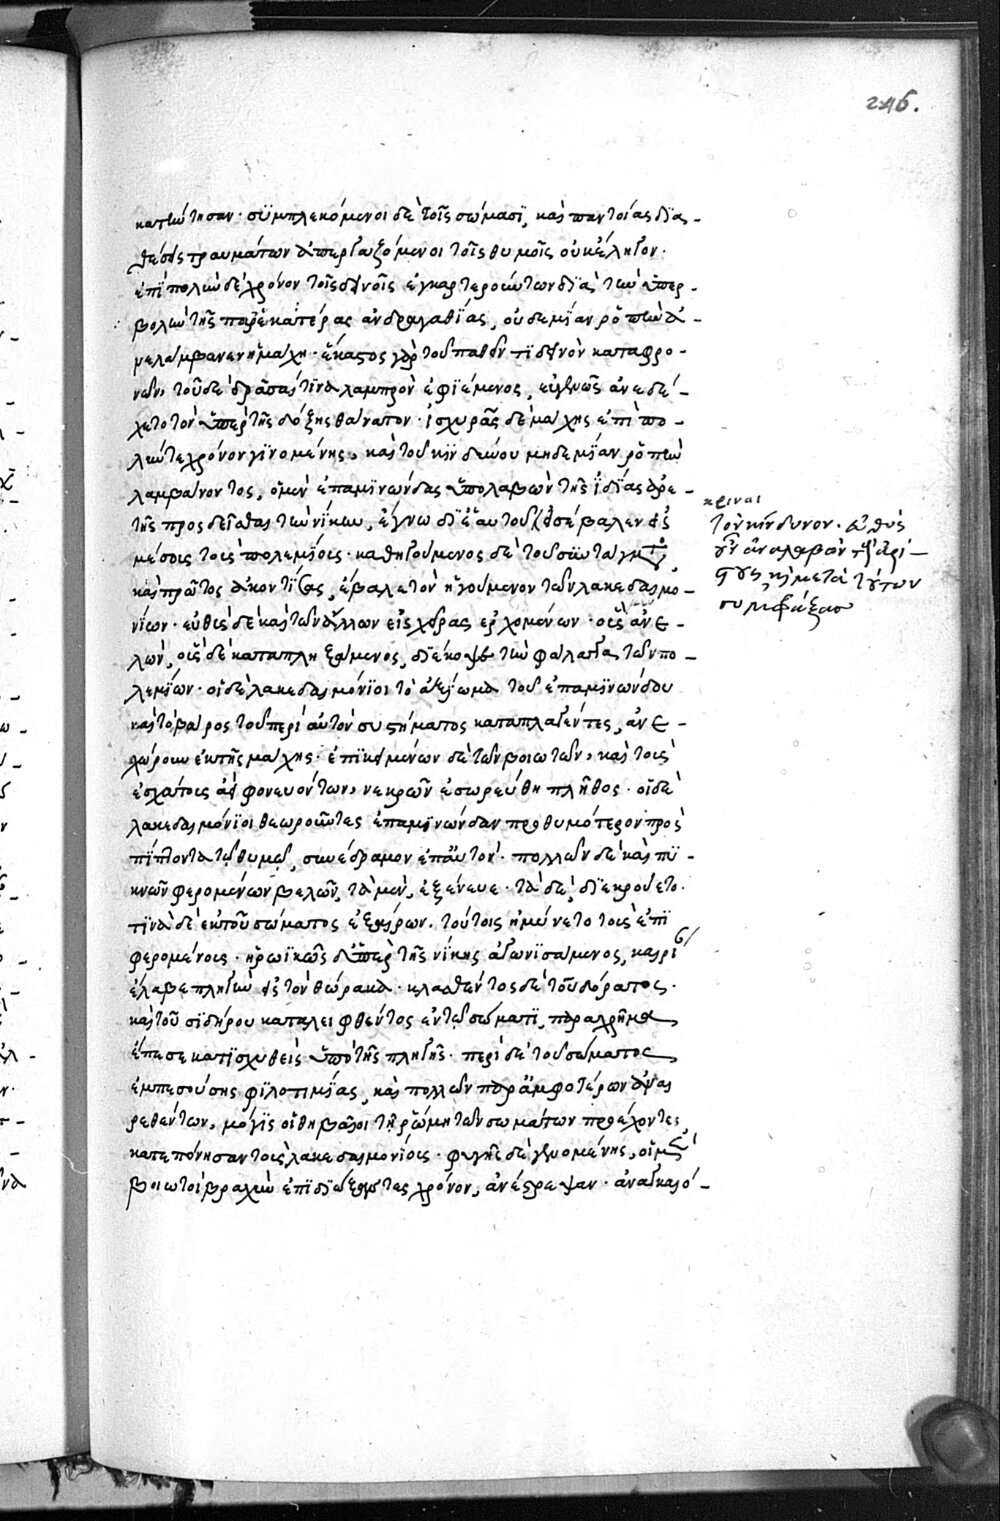 246.
κατήντησαν· συμπλεκόμενοι δὲ τοῖς σώμασϊ, καὶ παντοίας δϊα-
θέσεις τραυμάτων ἀπεργαζόμενοι τοῖς θυμοῖς οὐκ ἔληγον·
ἐπὶ πολὺν δὲ χρόνον τοῖς δεινοῖς ἐγκαρτερούντων δϊὰ τὴν ὑπερ-
βολὴν τῆς παρ' ἑκατέρας ἀνδραγαθίας, οὐδεμίαν ῥοπὴν ἀ-
νελάμβανεν ἡ μάχη· ἕκαστος γὰρ τοῦ παθεῖν τϊ δεινὸν καταφρο-
νῶν, τοῦ δὲ δρᾶσαί τϊνα λαμπρὸν ἐφϊέμενος, εὐγενῶς ἀνεδέ-
χετο τὸν ὑπὲρ τῆς δόξης θάνατον· ἰσχυρᾶς δὲ μάχης ἐπὶ πο-
λύν τε χρόνον γϊνομένης, καὶ τοῦ κϊνδύνου μηδεμίαν ῥοπὴν
λαμβάνοντος, ὁ μὲν ἐπαμϊνώνδας ὑπολαβὼν τῆς ἰδίας ἀρε-
τῆς προσδεῖσθαι τὴν νίκην, ἔγνω δϊ' ἑαυτοῦ εἰσέβαλεν εἰς
μέσους τοὺς πολεμίους· καθηγούμενος δὲ τοῦ συντάγματος,
καὶ πρῶτος ἀκοντίσας, ἔβαλε τὸν ἡγούμενον τῶν λακεδαιμο-
νίων· εὐθὺς δὲ καὶ τῶν ἄλλων εἰς χεῖρας ἐρχομένων· οὓς ἀνε-
λὼν, οὓς δὲ καταπληξάμενος, δϊέκοψε τὴν φάλαγγα τῶν πο-
λεμίων· οἱ δὲ λακεδαιμόνϊοι τὸ ἀξίωμα τοῦ ἐπαμϊνώνδου
καὶ τὸ βάρος τοῦ περὶ αὐτὸν συστήματος καταπλαγέντες, ἀνε-
χώρουν ἐκ τῆς μάχης· ἐπϊκειμένων δὲ τῶν βοιωτῶν, καὶ τοὺς
ἐσχάτους ἀεὶ φονευόντων, νεκρῶν ἐσωρεύθη πλῆθος· οἱ δὲ
λακεδαιμόνϊοι θεωροῦντες ἐπαμϊνώνδαν προθυμότερον προς
πίπτοντα τῷ θυμῷ, συνέδραμον ἐπ' αὐτόν· πολλῶν δὲ καὶ πυ-
κνῶν φερομένων βελῶν, τὰ μὲν, ἐξένευε· τὰ δὲ, δϊεκρούετο·
τϊνὰ δὲ ἐκ τοῦ σώματος ἐξαίρων, τούτοις ἠμύνετο τοὺς ἐπϊ
φερομένους· ἡρωϊκῶς δ' ὑπὲρ τῆς νίκης ἀγωνϊσάμενος, καιρί
ἔλαβε πληγὴν εἰς τὸν θώρακα· κλασθέντος δὲ τοῦ δόρατος·
καὶ τοῦ σϊδήρου καταλειφθέντος ἐν τῷ σώματϊ, παραχρῆμα
ἔπεσε κατϊσχυθεὶς ὑπὸ τῆς πληγῆς· περὶ δὲ τοῦ σώματος
ἐμπεσούσης φϊλοτιμίας, καὶ πολλῶν παρ' ἀμφοτέρων ἀναι
ρεθέντων, μόγϊς οἱ θηβαῖοι τῇ ῥώμῃ τῶν σωμάτων προέχοντες,
κατεπόνησαν τοὺς λακεδαιμονίους· φυγῆς δὲ γενομένης, οἱ μὲν
βοιωτοὶ βραχὺν ἐπιδϊώξαντες χρόνον, ἀνέστρεψαν· ἀναγκαιό-
κριναι
τὸν κίνδυνον· εὐθὺς
οὖν ἀναλαβὼν τοὺς ἀρί-
στους, καὶ μετὰ τούτων
συμφράξας